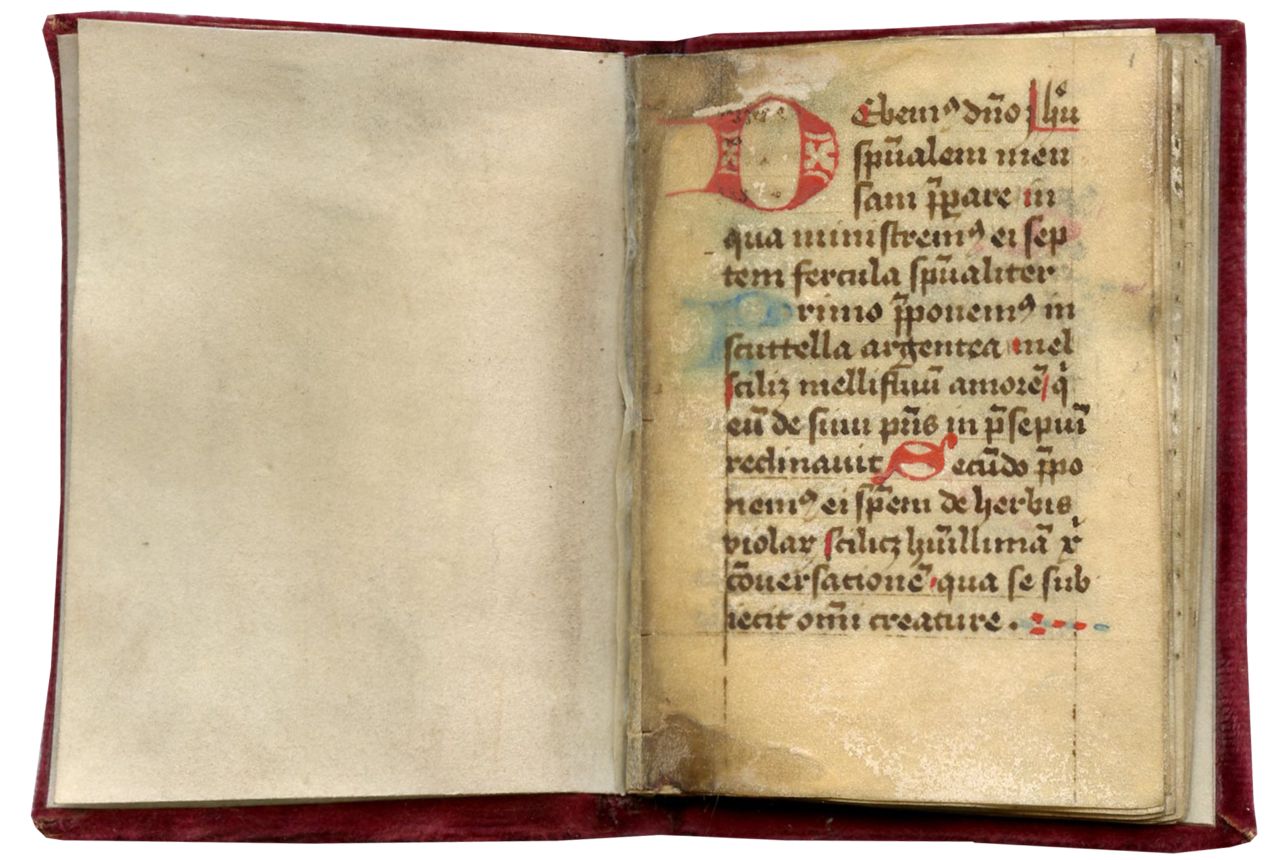 1
DEbemꝰ dn̄o Ihū
sp̄ualem men
sam p̄pare in
qua ministremꝰ ei sep
tem fercula sp̄ualiter
Primo p̄ponemꝰ in
scuttella argentea mel
sciliz mellifluū amorē q̇
eū de sinu pr̄is in p̄sepiū
reclinauit Secūdo p̄po
nemꝰ ei sp̄em de herbis
violaꝝ scilicz hūillimā xi
cōuersationē qua se sub
iecit om̄i creature .